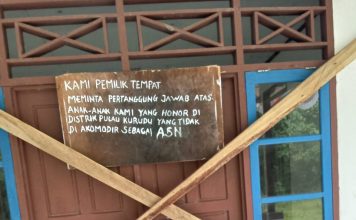 KAMI PEMILIK TEMPAT
MEMINTA PERTANGGUNG JAWAB ATAS.
ANAK-ANAK KAMI YANG HONOR DI
DISTRIK PULAU KURUDU YANG TIDAK
DI AKOMODIR SEBAGAI ASN